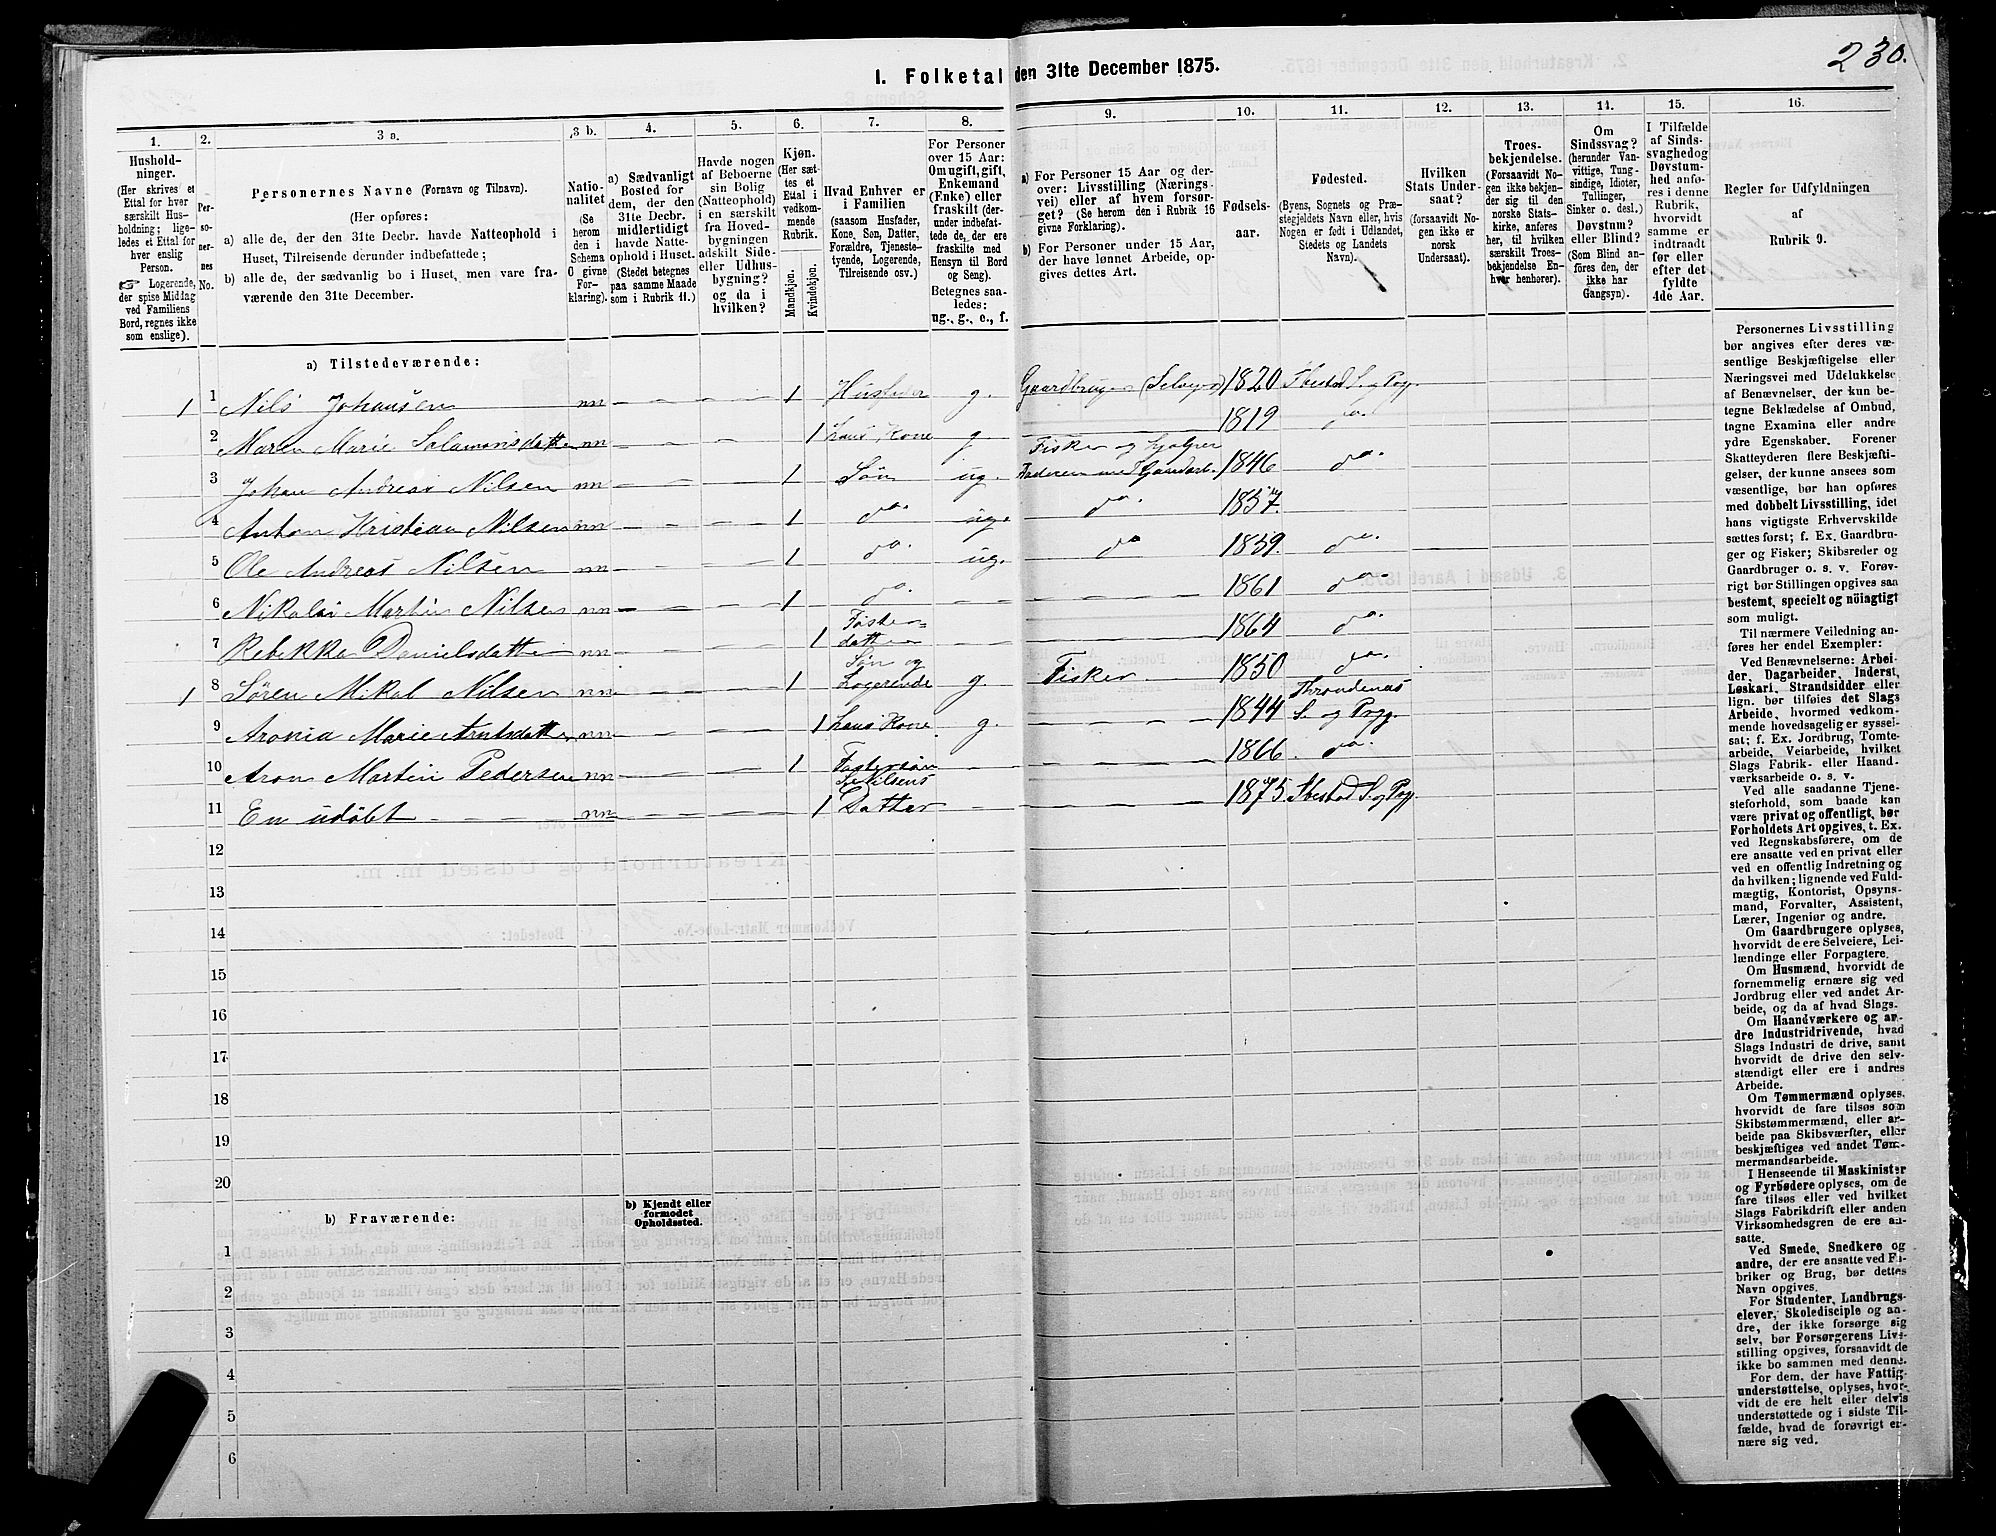 230.
1. Folketal den 31te December 1875.
1. 2. 3 a. 3 b. 4. 5. 6. 7. 8. 9. 10. 11. 12. 13. 14. 15. 16.
Hushold-
ninger.
(Her skrives et
Ettal for hver
særskilt Hus-
holdning; lige-
ledes et Ettal for
hver enslig
Person.
☞ Logerende,
der spise Middag
ved Familiens
Bord, regnes ikke
som enslige).
Per-
so-
ner-
nes
No.
Personernes Navne (Fornavn og Tilnavn).
(Her opføres:
a) alle de, der den 31te Decbr. havde Natteophold i
Huset, Tilreisende derunder indbefattede;
b) alle de, der sædvanlig bo i Huset, men vare fra-
værende den 31te December.
Natio-
nalitet
(Se
herom
den i
Schema
O givne
For-
klaring).
a) Sædvanligt
Bosted for
dem, der den
31te Decbr.
midlertidigt
havde Natte-
ophold i Huset.
(Stedet betegnes
paa samme Maade
som i Rubrik 11.)
Havde nogen
af Beboerne
sin Bolig
(Natteophold)
i en særskilt
fra Hoved-
bygningen
adskilt Side-
eller Udhus-
bygning?
og da i
hvilken?
Kjøn.
(Her sæt-
tes et
Ettal i
vedkom-
mende
Rubrik.
Mandkjøn.
Kvindekjøn.
Hvad Enhver er
i Familien
(saasom Husfader,
Kone, Søn, Datter,
Forældre, Tjeneste-
tyende, Logerende,
Tilreisende osv.)
For Personer
over 15 Aar:
Om ugift, gift,
Enkemand
(Enke) eller
fraskilt (der-
under indbefat-
tede de, der ere
fraskilte med
Hensyn til Bord
og Seng).
Betegnes saa-
ledes:
ug., g., e., f.
a) For Personer 15 Aar og der-
over: Livsstilling (Nærings-
vei) eller af hvem forsør-
get? (Se herom den i Rubrik 16
givne Forklaring).
b) For Personer under 15 Aar,
der have lønnet Arbeide, op-
gives dettes Art.
Fødsels-
aar.
Fødested.
(Byens, Sognets og Præ-
stegjeldets Navn eller, hvis
Nogen er født i Udlandet,
Stedets og Landets
Navn).
Hvilken
Stats Under-
saat?
(forsaavidt No-
gen ikke er
norsk
Undersaat).
Troes-
bekjendelse.
(Forsaavidt No-
gen ikke bekjen-
der sig til den
norske Stats-
kirke, anføres
her, til hvilken
særskilt Troes-
bekjendelse En-
hver henhører).
Om
Sindssvag?
(herunder Van-
vittige, Tung-
sindige, Idioter,
Tullinger,
Sinker o. desl.)
Døvstum?
eller Blind?
(Som Blind an-
føres den, der
ikke har
Gangsyn).
I Tilfælde
af Sinds-
svaghed og
Døvstum-
hed anfø-
res i denne
Rubrik,
hvorvidt
samme er
indtraadt
før eller
efter det
fyldte
4de Aar.
Regler for Udfyldningen
af
Rubrik 9.
a) Tilstedeværende:
1 1 Nils Johansen nn 1 Husfader g. Gaardbruger (Selveier) 1820 Ibestad S. og Pgj.
2 Maren Marie Salamonsdatter nn 1 hans Kone g. 1819 do.
3 Johan Andreas Nilsen nn 1 Søn ug. Fisker og hjælper Faderen med Gaardarb. 1846 do.
4 Anton Kristian Nilsen nn 1 do. ug. do. 1857. do.
5 Ole Andreas Nilsen nn 1 do. ug. do 1859. do.
6 Nikolai Martin Nilsen nn 1 do. 1861 do.
7 Rebekka Danielsdatter nn 1 Foster-datter 1864 do.
1 8 Søren Mikal Nilsen nn 1 Søn og Logerende g. Fisker 1850 do.
9 Aronia Marie Arntsdatter nn 1 hans Kone g. 1844 Throndenæs S. og Pgj.
10 Aron Martin Pedersen nn 1 Fostersøn 1866 do.
11 En udøbt nn 1 S. Nilsens Datter 1875 Ibestad S. og Pgj.
12
13
14
15
16
17
18
19
20
b) Fraværende:
b) Kjendt eller
formodet
Opholdssted.
1
2
3
4
5
6
Personernes Livsstilling
bør angives efter deres væ-
sentlige Beskjæftigelse eller
Næringsvei med Udelukkelse
af Benævnelser, der kun be-
tegne Beklædelse af Ombud,
tagne Examina eller andre
ydre Egenskaber. Forener
Skatteyderen flere Beskjæfti-
gelser, der kunne ansees som
væsentlige, bør han opføres
med dobbelt Livsstilling, idet
hans vigtigste Erhvervskilde
sættes først; f. Ex. Gaardbru-
ger og Fisker; Skibsreder og
Gaardbruger o. s. v. Forøv-
rigt bør Stillingen opgives saa
bestemt, specielt og nøiagtigt
som muligt.
Til nærmere Veiledning an-
føres her endel Exempler:
Ved Benævnelserne: Arbei-
der, Dagarbeider, Inderst,
Løskari, Strandsidder eller
lign. bør tilføies det Slags
Arbeide, hvormed vedkom-
mende hovedsagelig er syssel-
sat; f. Ex. Jordbrug, Tomte-
arbeide, Veiarbeide, hvilket
Slags Fabrik- eller Haand-
værksarbeide o. s. v.
Ved alle saadanne Tjene-
steforhold, som baade kan
være privat og offentligt, bør
Forholdets Art opgives, t. Ex.
ved Regnskabsførere, om de
ere ansatte ved en privat eller
ved en offentlig Indretning og
da hvilken; lignende ved Fuld-
mægtig, Kontorist, Opsyns-
mand, Forvalter, Assistent,
Lærer, Ingeniør og andre.
Om Gaardbrugere oplyses,
hvorvidt de ere Selveiere, Lei-
lændinge eller Forpagtere.
Om Husmænd, hvorvidt de
fornemmelig ernære sig ved
Jordbrug eller ved andet Ar-
beide, og da af hvad Slags.
Om Haandværkere og an-
dre Industridrivende, hvad
Slags Industri de drive, samt
hvorvidt de drive den selv-
stændigt eller ere i andres
Arbeide.
Om Tømmermænd oplyses,
hvorvidt de fare tilsøs som
Skibstømmermænd, eller ar-
beide paa Skibsværfter, eller
beskjæftiges ved andet Tøm-
mermandsarbeide.
I Henseende til Maskinister
og Fyrbødere oplyses, om de
fare tilsøs eller ved hvilket
Slags Fabrikdrift eller anden
Virksomhedsgren de ere an-
satte.
Ved Smede, Snedkere og
andre, der ere ansatte ved Fa-
briker og Brug, bør dettes
Navn opgives.
For Studenter, Landbrugs-
elever, Skoledisciple og an-
dre, der ikke forsørge sig
selv, bør Forsørgerens Livs-
stilling opgives, forsaavidt de
ikke bo sammen med denne.
For dem, der have Fattig-
understøttelse, oplyses, hvor-
vidt de ere helt eller delvis
understøttede og i sidste Til-
fælde, hvad de forøvrigt er-
nære sig ved.